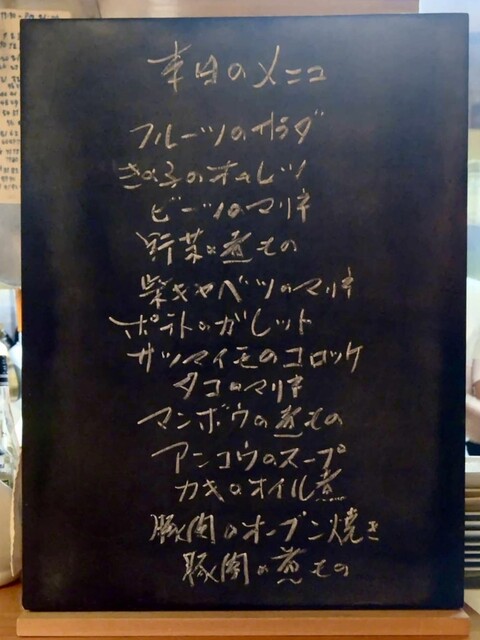 本日のメニュ
フルーツのサラダ
きの子のオムレツ
ビーツのマリネ
野菜の煮もの
紫キャベツのマリネ
ポテトのガレット
サツマイモのコロッケ
タコのマリネ
マンボウの煮もの
アンコウのスープ
カキのオイル煮
豚肉のオーブン焼き
豚肉の煮もの